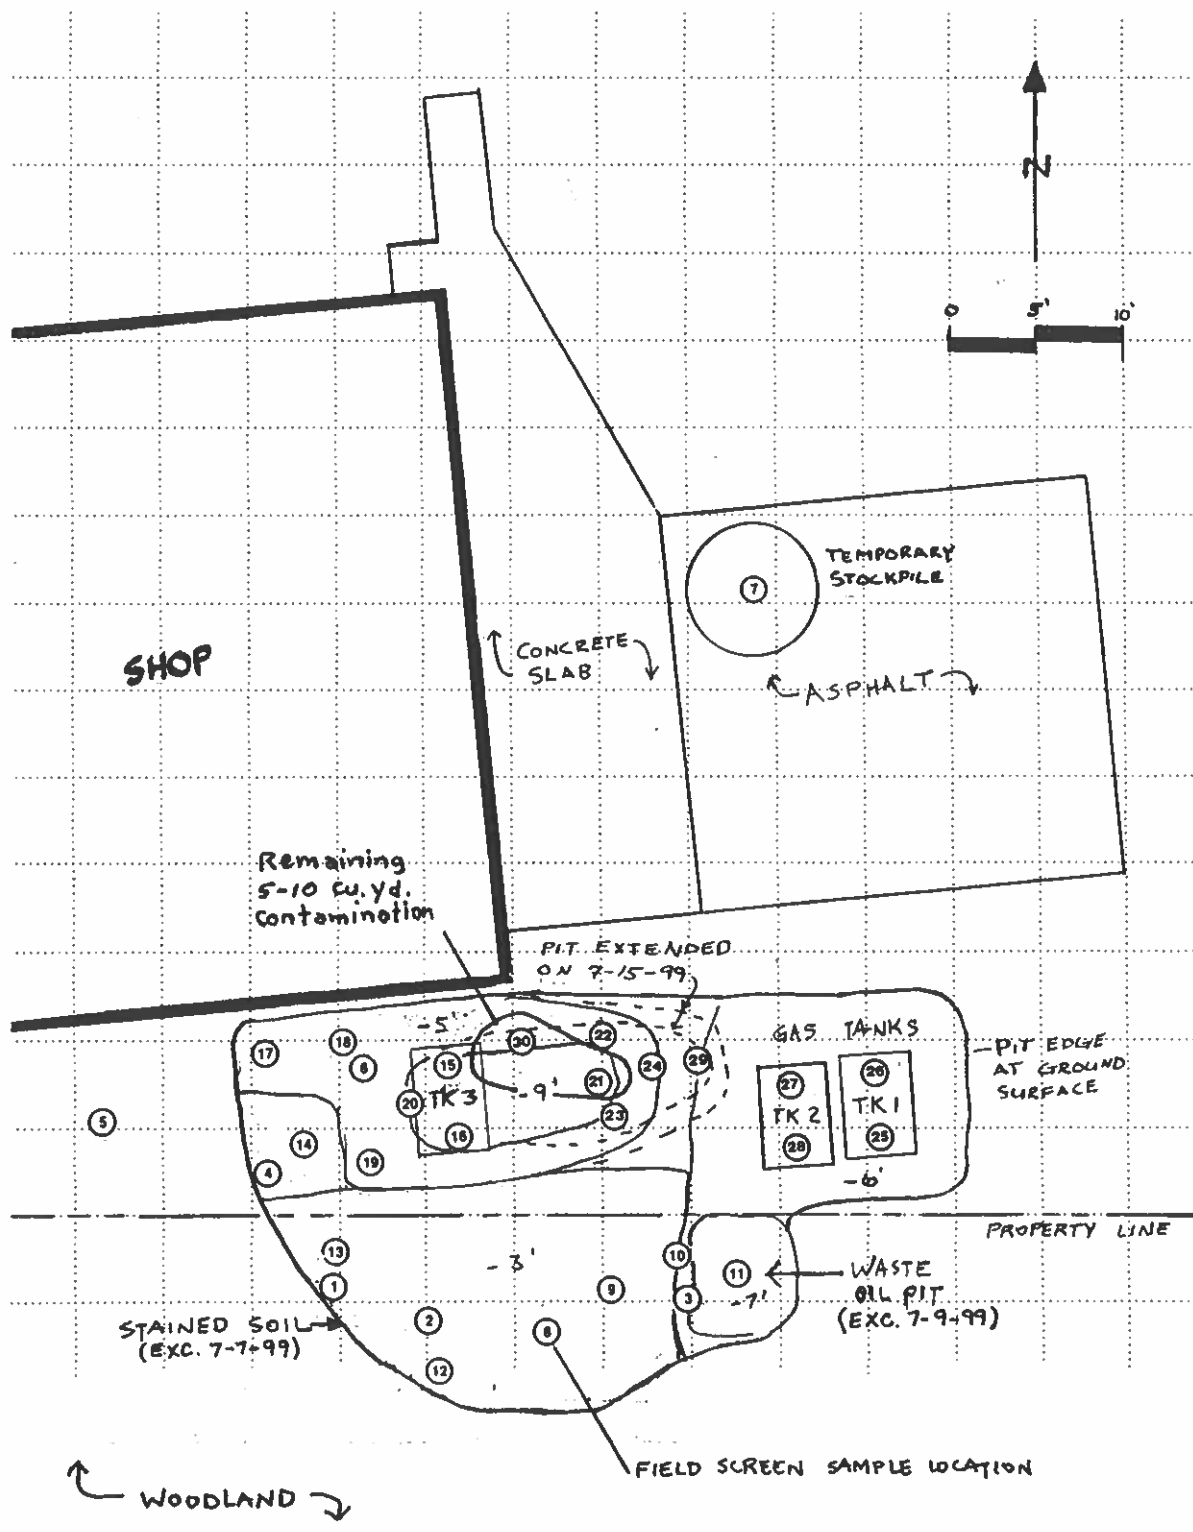 N
0 5' 10'
TEMPORARY
STOCKPILE
7
SHOP
CONCRETE
SLAB
ASPHALT
Remaining
5-10 cu.yd.
contamination
PIT EXTENDED
ON 7-15-99
-5'
GAS TANKS
PIT EDGE
AT GROUND
SURFACE
17
18
6
15
30
22
24
29
27
26
5
20
TK 3
-9'
21
23
TK 2
TK 1
14
16
28
25
4
19
-6'
PROPERTY LINE
13
-3'
10
11
WASTE
OIL PIT
(EXC. 7-9-99)
1
9
3
-7'
STAINED SOIL
(EXC. 7-7-99)
2
8
12
FIELD SCREEN SAMPLE LOCATION
WOODLAND